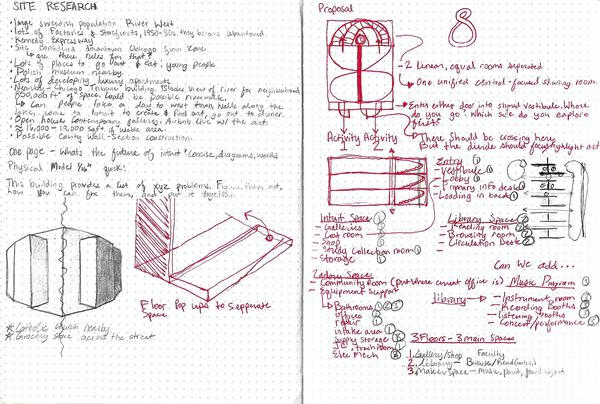 SITE RESEARCH
• large swedish population. River West
• Lots of Factories & Storefronts, 1950-80s, they became abandoned
• Kennedy Expressway
• Site considered downtown Chicago fire zone
↳ are there rules for that?
• Lots of places to go out & eat, young people
• Polish museum nearby.
• Lots of developing luxury apartments.
• Nearby - Chicago Tribune building. Blocks view of river for neighborhood
850,000 ft² of space. Could be possible rivermark.
↳ can people take a day to west town, walk along the
river, come to intuit to create & find art, go out to dinner.
• Open house contemporary gallery. Airbnb live w/ the art.
• ≈ 16,000 - 19,000 sqft of usable area.
• Possible Curtain Wall-Section construction.
One page - Whats the future of intuit? Concise, diagrams, words
Physical Model 1/16" quick!
This building provides a lot of xyz problems. Figure them out,
how you can fix them, and put it together.
Floor Pop ups to sepperate
space
* Catholic church nearby
* Grocery store across the street
Proposal
8
2 Linear, equal rooms seperated
One unified central-focused sharing room.
Enter either door into shared vestibule. Where
do you go? Which side do you explore
first?
There should be crossing here
But the divide should focus/highlight act
Activity Activity
1 2
Entry ①
- Vestibule ①
- Lobby ①
- Primary info desk ①
- Loading in back ①
Intuit Space
- Galleries
- Coat room
- Shop
- Study collection room ①
- Storage ①
Library Space ②
- Reading room ②
- Browsing room ②
- Circulation Desk ②
- Community Room (put where current office is)
- Equipment Support
↳ Bathrooms ① ② ③
offices
repair
intake area
supply storage
JC, trash room
Elec Mech
Can We add...
Library → Music Program ③
- Instrument room
- Recording Booths
- listening Booths
- Concert/performance
3 Floors - 3 main Spaces
1. Gallery/Shop Faculty
2. Library - Browse/Read
3. Maker Space - Music, paint, found object